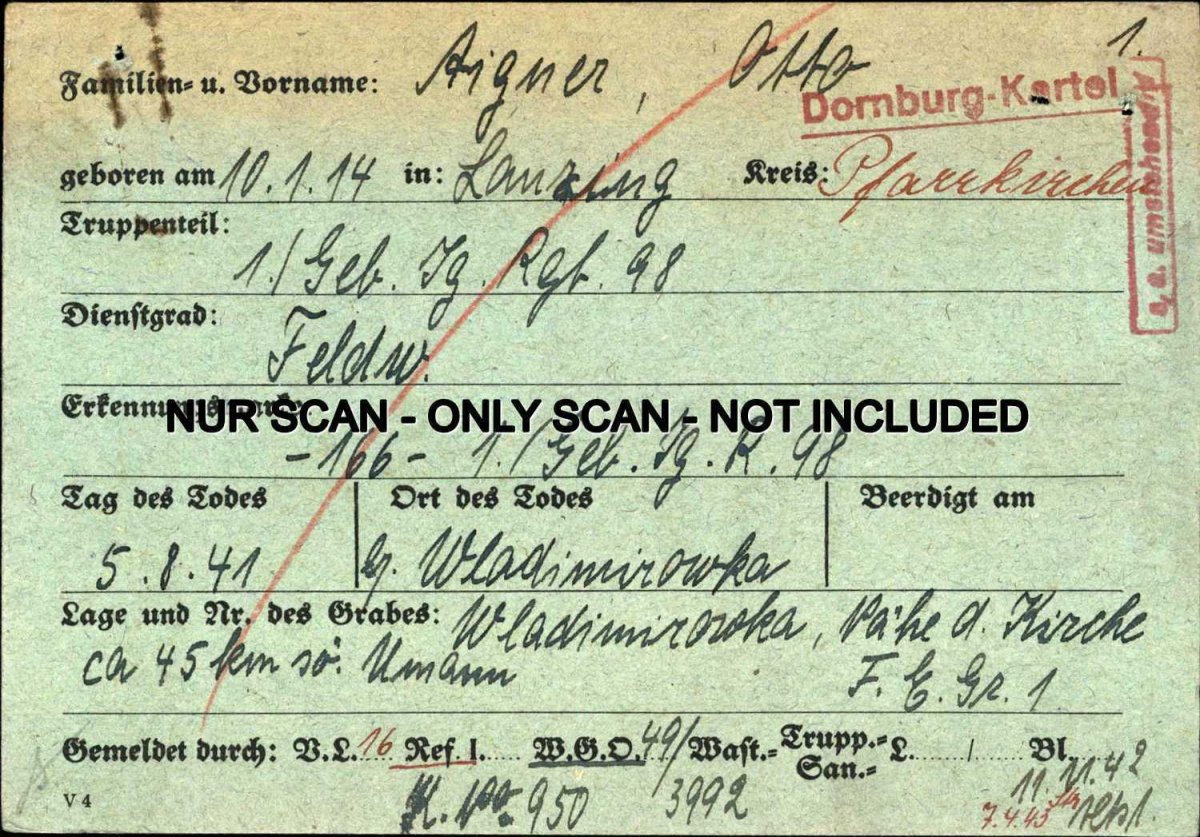 1.
Familien- u. Vorname: Aigner, Otto
Dornburg-Kartei
s, a. umstehend
geboren am 10.1.14 in: Lanzing Kreis: Pfarrkirchen
Truppenteil:
1./Geb. Jg. Rgt. 98
Dienstgrad:
Feldw.
Erkennungsmarke
NUR SCAN - ONLY SCAN - NOT INCLUDED
-166- 1./Geb. Jg. R. 98
Tag des Todes Ort des Todes Beerdigt am
5.8.41 Wladimirowka
Lage und Nr. des Grabes: Wladimirowka, Nähe d. Kirche
ca 45 km sö. Umann F. E. Gr. 1
Gemeldet durch: V.L. 16 Ref. I. W.G.O. 49/ Wast.- Trupp.- San.- L. / Bl.
950 3992 11.11.42
V 4 7.4.43